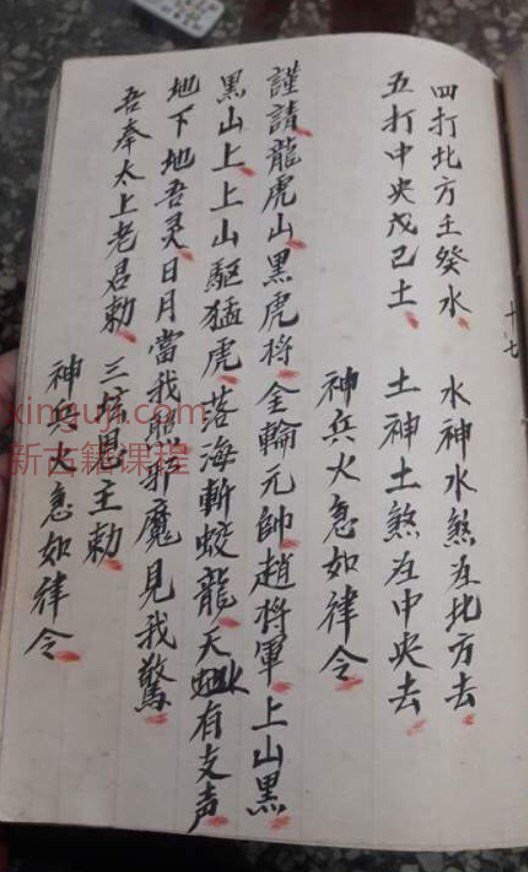 四打北方壬癸水 水神水煞在北方去
五打中央戊己土 土神土煞在中央去
神兵火急如律令
謹請龍虎山黑虎將 全輪元帥趙將軍 上山黑
黑山上上山駆猛虎 落海斬蛟龍 天有支声
地下地吾灵 日月當我照 邪魔見我驚
吾奉太上老君勅 三恩主勅
神兵火急如律令
十七
xinguji.com
新古籍课程